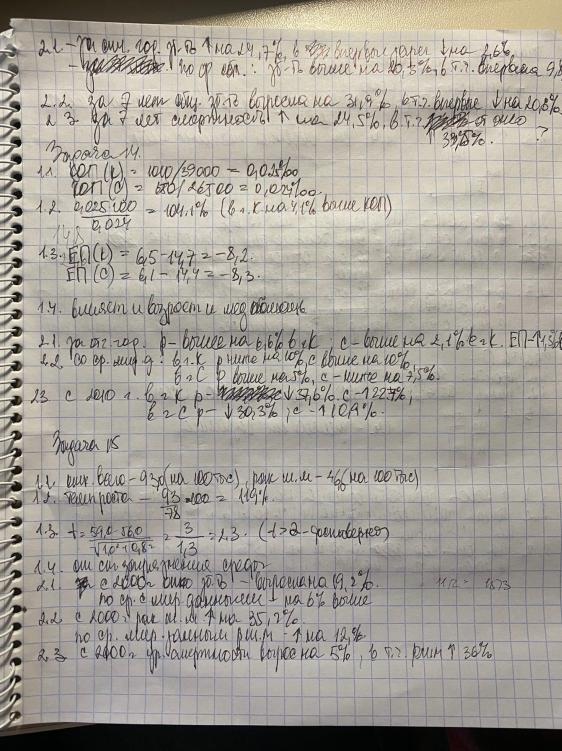 2.1 - за отч. год. з-ть ↑ на 24,7%, в впервые ↓ на 2,6%,
по ср. обл.: з-ть выше на 20,3%, в т.ч. впервые 9,8
2.2. за 7 лет общ. з-ть возросла на 31,9%, в т.ч. впервые ↓ на 20,8%
2.3. за 7 лет смертность ↑ на 24,5%, в т.ч. от
↑ 39,5%. ?
Задача 14.
1.1. КОП(К) = 1010/39000 = 0,025‰
КОП(С) = 650/26700 = 0,024‰.
1.2. 0,025·100 / 0,024 = 104,1% (в г. К на 4,1% выше КОП)
1.3. ЕП(К) = 6,5-14,7 = -8,2.
ЕП(С) = 6,1-14,4 = -8,3.
1.4. влияет и возраст и мед помощь
2.1. за отч. год. р - выше на 6,6% в г. К; с - выше на 2,1% в г. К. ЕП
2.2 со ср. мир. д: в г. К р ниже на 10%, с выше на 10%,
в г. С р выше на 5%, с - ниже на 7,5%.
2.3 с 2010 г. в г К р - ↓ 37,6%. с -
в г С р - ↓ 30,3%; с -
Задача 15
1.1. всего - 93 (на 100 тыс), рак ш.м - (на 100 тыс)
1.2. темп роста - 93/78 · 100 = 119%
1.3 t = 59,0-56,0 / √1,0²+0,8² = 3/1,3 = 2,3. (t>2 - достоверно)
1.4. от загрязнения среды
2.1. с 2000г з-ть - возросла на 19,2%.
по ср. с мир. данными - на 6% выше
2.2 с 2000г рак ш.м ↑ на 35,2%
по ср. мир. данным рш.м - ↑ на 12%
2.3 с 2000г ур. смертности вырос на 5%, в т.ч. рш.м ↑ 36%